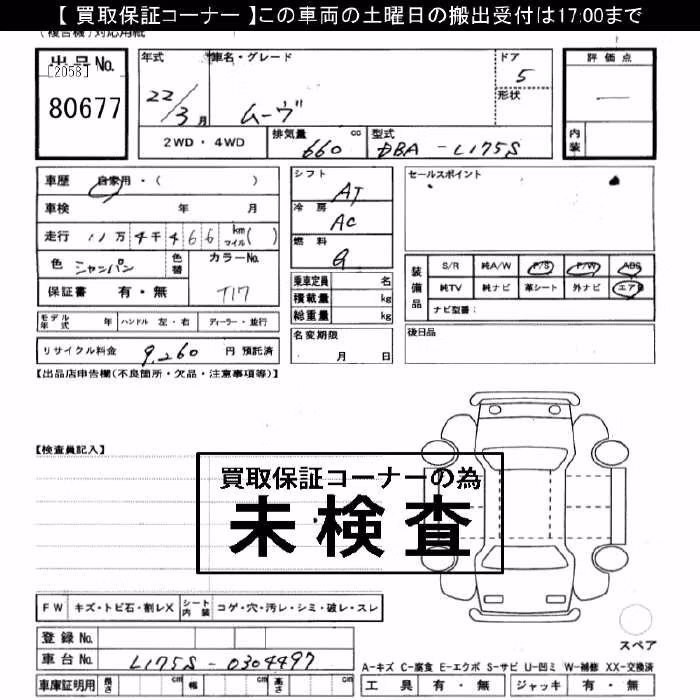 【 買取保証コーナー 】この車両の土曜日の搬出受付は17:00まで
(複合機)対応用紙
出品No.
[2058]
80677
年式
22/3月
車名・グレード
ムーヴ
ドア
5
形状
2WD・4WD
排気量
660 cc
型式
DBA-L175S
評価点
—
内装
車歴 自家用・( )
車検 年 月
走行 11万4千466 km マイル( )
色 シャンパン
色替
カラーNo.
T17
保証書 有・無
モデル年式 年 ハンドル 左・右 ディーラー・並行
リサイクル料金 9,260 円 預託済
シフト
AT
冷房
AC
燃料
G
乗車定員 名
積載量 kg
総重量 kg
名変期限
月 日
セールスポイント
装備品
S/R 純A/W P/S P/W ABS
純TV 純ナビ 革シート 外ナビ エアB
ナビ型番：
後日品
【出品店申告欄(不良箇所・欠品・注意事項等)】
【検査員記入】
買取保証コーナーの為
未検査
FW キズ・トビ石・割レX シート内装 コゲ・穴・汚レ・シミ・破レ・スレ
登録No.
車台No. L175S-0304497
車庫証明用 長さ cm 幅 cm 高さ cm
スペア
A-キズ C-腐食 E-エクボ S-サビ U-凹ミ W-補修 XX-交換済
工具 有・無 ジャッキ 有・無